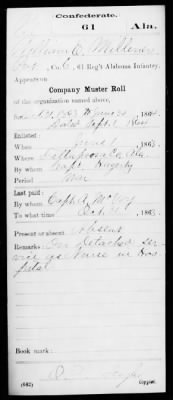 Confederate.
61 Ala.
William C.
Pvt., Co. C, 61 Reg't Alabama Infantry.
Appears on
Company Muster Roll
of the organization named above,
for 31, 1863 to June 30, 1864.
Dated Sept. 1
Enlisted:
When June 1, 1863.
Where Tallapoosa Co Ala
By whom Capt.
Period War
Last paid:
By whom Capt. A.
To what time Oct. 31, 1863.
Present or absent Absent
Remarks: On detached ser-
vice as Nurse in Hos
pital
Book mark:
(642) Copyist.